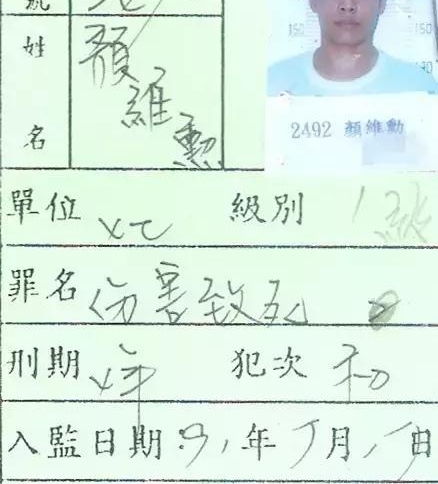 號
姓名 顏維勳
150 150
2492 顏維勳
單位 級別 1級
罪名 傷害致死
刑期 年 犯次 初
入監日期:91年 月 日